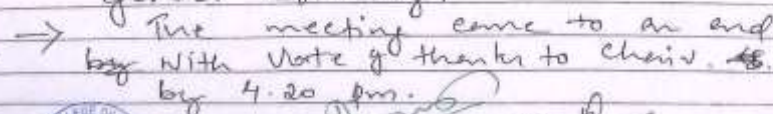 → The meeting came to an end
with Vote of thanks to Chair.
by 4.20 pm.